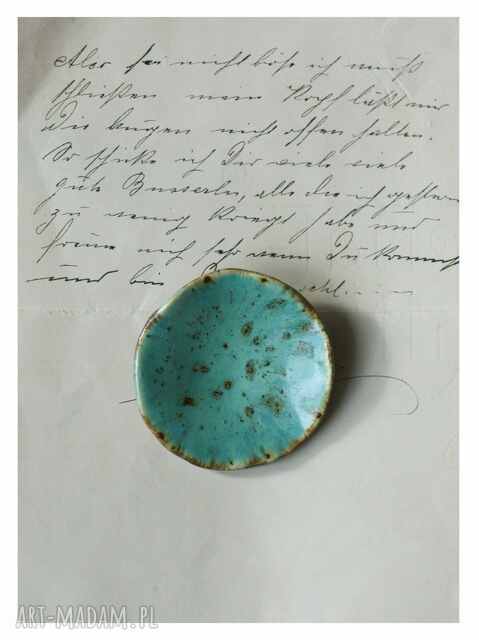 Also sei nicht böse ich muß
schließen mein Kopf läßt mir
die Augen nicht offen halten.
So schicke ich Dir viele viele
gute Busserln, alle die ich gestern
zu wenig kriegt habe und
freue mich sehr wenn Du kommst
und bin
ART-MADAM.PL